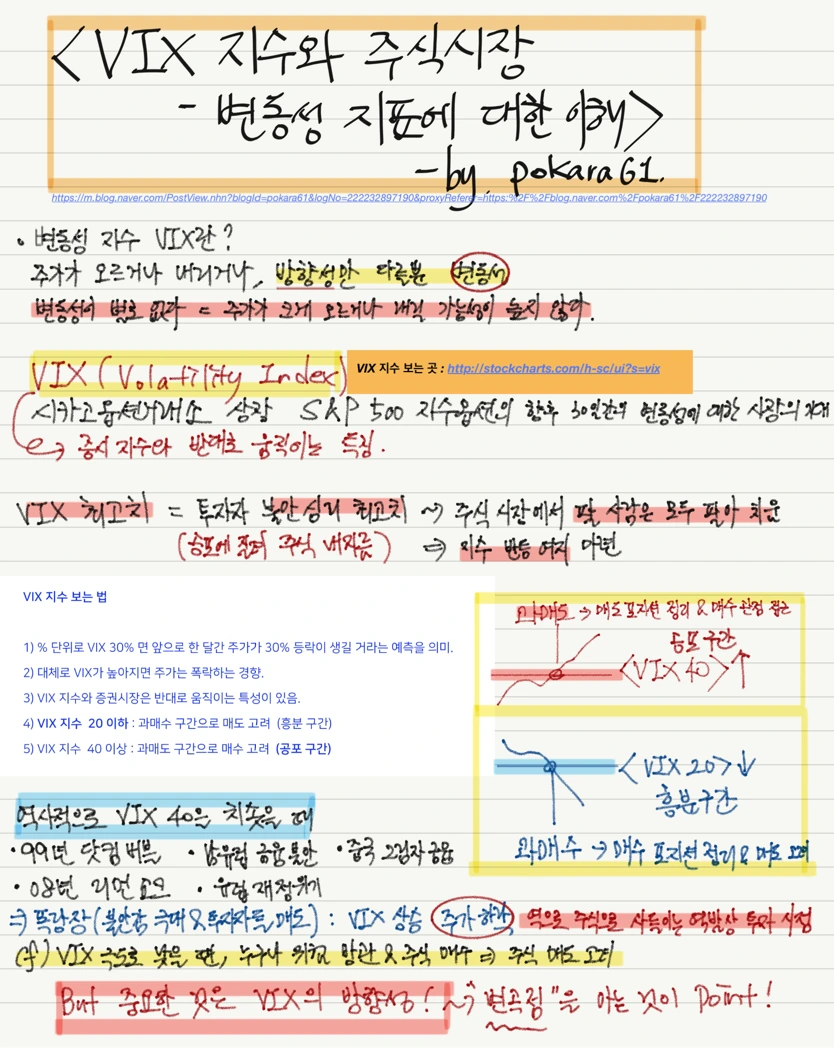 <VIX 지수와 주식시장
- 변동성 지표에 대한 이해>
- by. pokara61.
https://m.blog.naver.com/PostView.nhn?blogId=pokara61&logNo=222232897190&proxyReferer=https:%2F%2Fblog.naver.com%2Fpokara61%2F222232897190
• 변동성 지수 VIX란?
주가가 오르거나 내리거나, 방향성만 다를뿐 변동성
변동성이 별로 없다 = 주가가 크게 오르거나 내릴 가능성이 높지 않다.
VIX (Volatility Index)
VIX 지수 보는 곳 : http://stockcharts.com/h-sc/ui?s=vix
시카고옵션거래소 상장 S&P 500 지수옵션의 향후 30일간의 변동성에 대한 시장의 기대
→ 증시 지수와 반대로 움직이는 특징.
VIX 최고치 = 투자자 불안심리 최고치 ~> 주식 시장에서 팔 사람은 모두 팔아 치운
(공포에 질려 주식 내지름) ⇒ 지수 반등 여지 마련
VIX 지수 보는 법
1) % 단위로 VIX 30% 면 앞으로 한 달간 주가가 30% 등락이 생길 거라는 예측을 의미.
2) 대체로 VIX가 높아지면 주가는 폭락하는 경향.
3) VIX 지수와 증권시장은 반대로 움직이는 특성이 있음.
4) VIX 지수 20 이하 : 과매수 구간으로 매도 고려 (흥분 구간)
5) VIX 지수 40 이상 : 과매도 구간으로 매수 고려 (공포 구간)
과매도 → 매도포지션 정리 & 매수 관점 접근
공포구간
<VIX 40> ↑
<VIX 20> ↓
흥분구간
과매수 → 매수 포지션 정리 & 매도 고려
역사적으로 VIX 40을 치솟을 때
• 99년 닷컴 버블 • 남유럽 금융불안 • 중국 그림자 금융
• 08년 리먼 쇼크 • 유럽 재정위기
⇒ 폭락장(불안감 극대 & 투자자들 매도) : VIX 상승 주가하락 역으로 주식으로 사들이는 역발상 투자 시점
cf) VIX 극도로 낮을 땐, 누구나 위험 망관 & 주식 매수 ⇒ 주식 매도 고려
But 중요한 것은 VIX의 방향성! ~> "변곡점"을 아는 것이 Point!